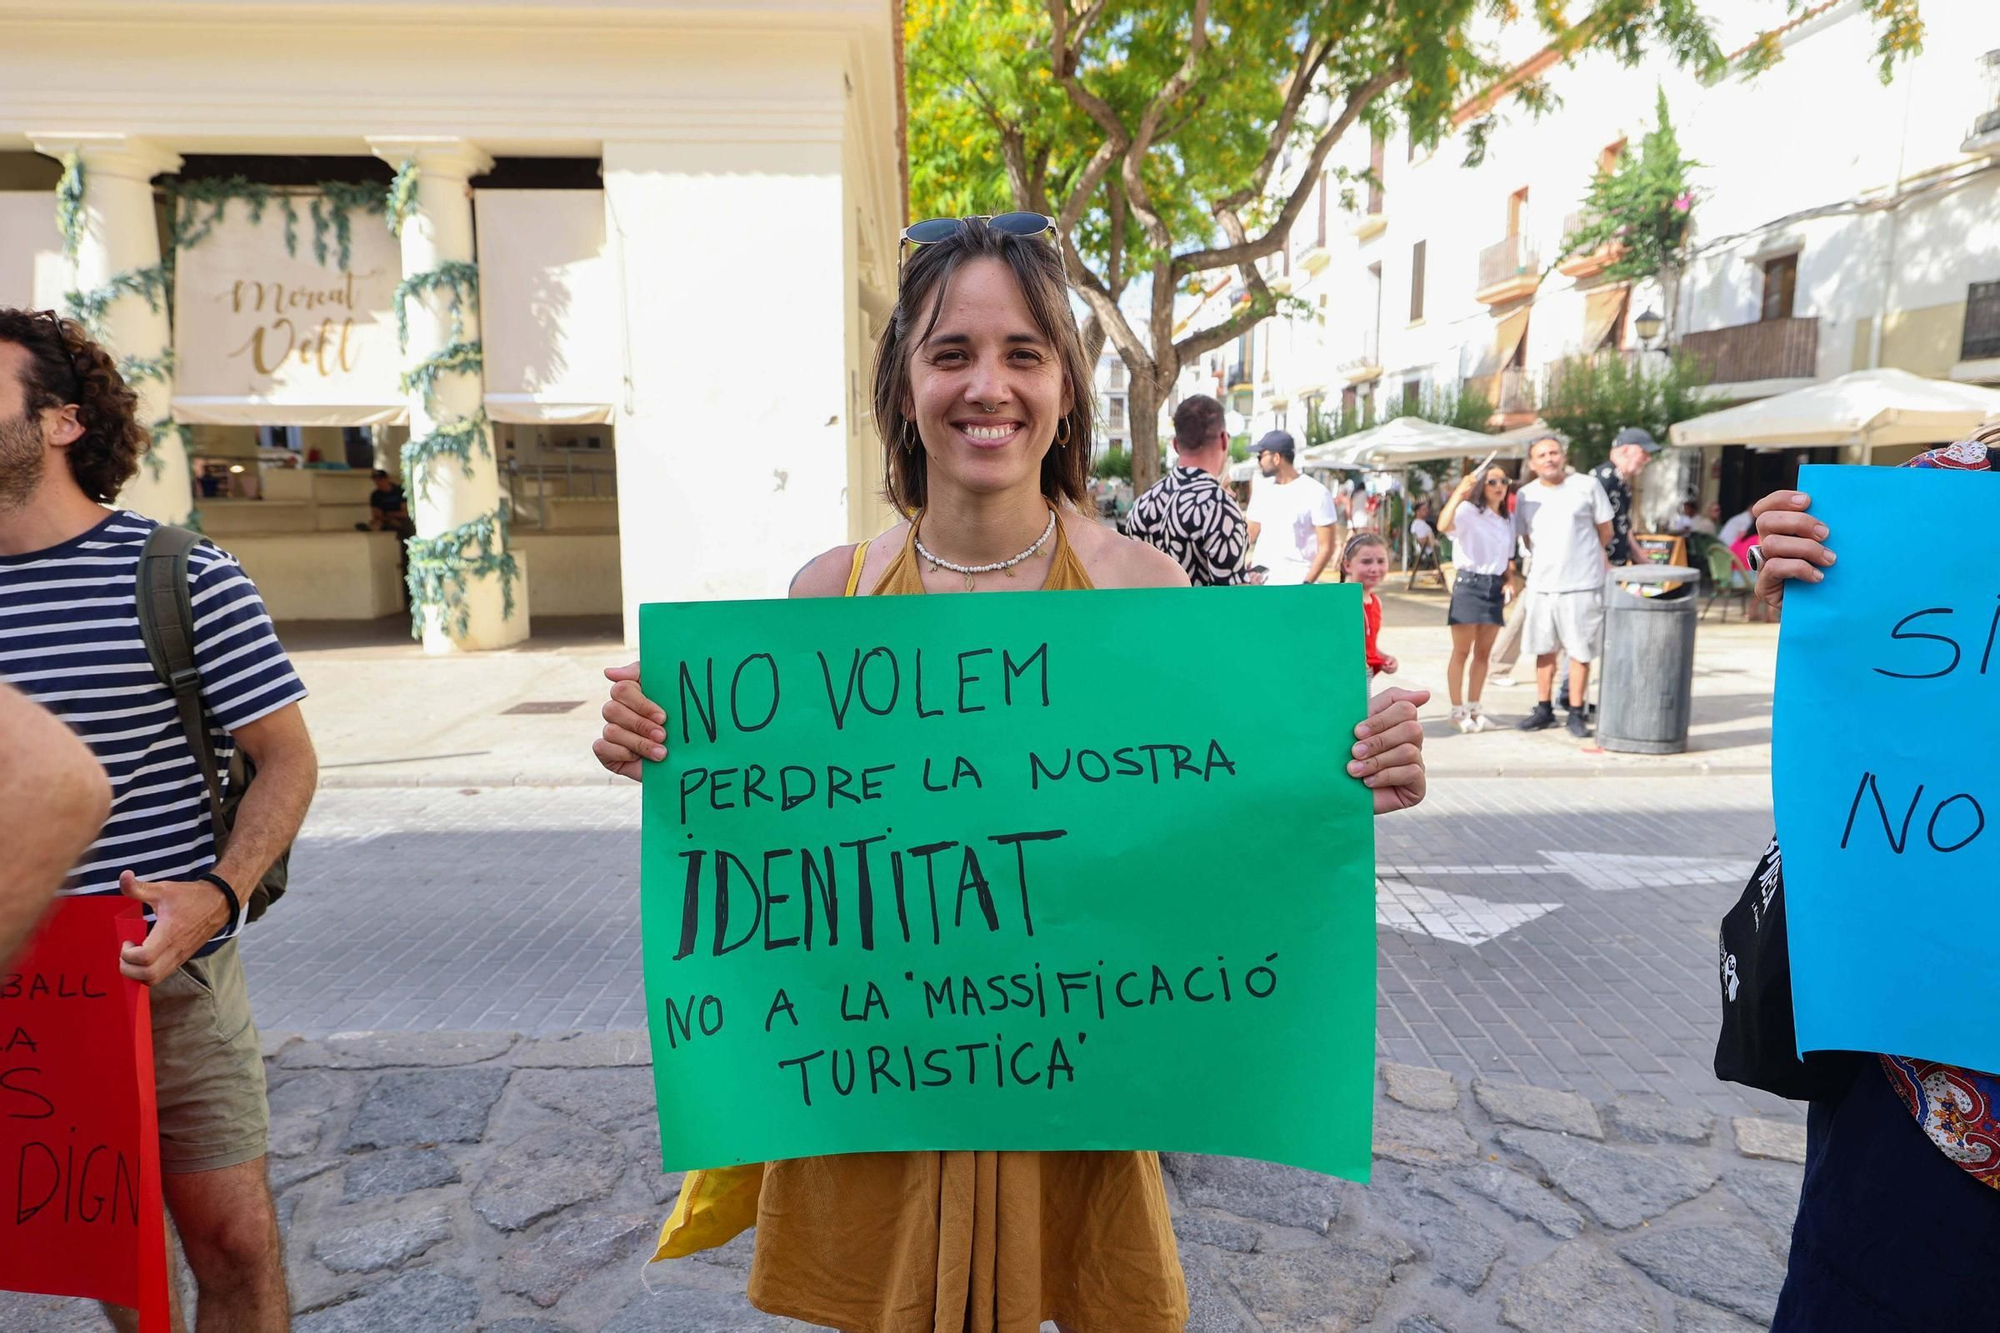 Mercat
Vell
NO VOLEM
PERDRE LA NOSTRA
IDENTITAT
NO A LA "MASSIFICACIÓ
TURISTICA"
SÍ
NO
DIGN